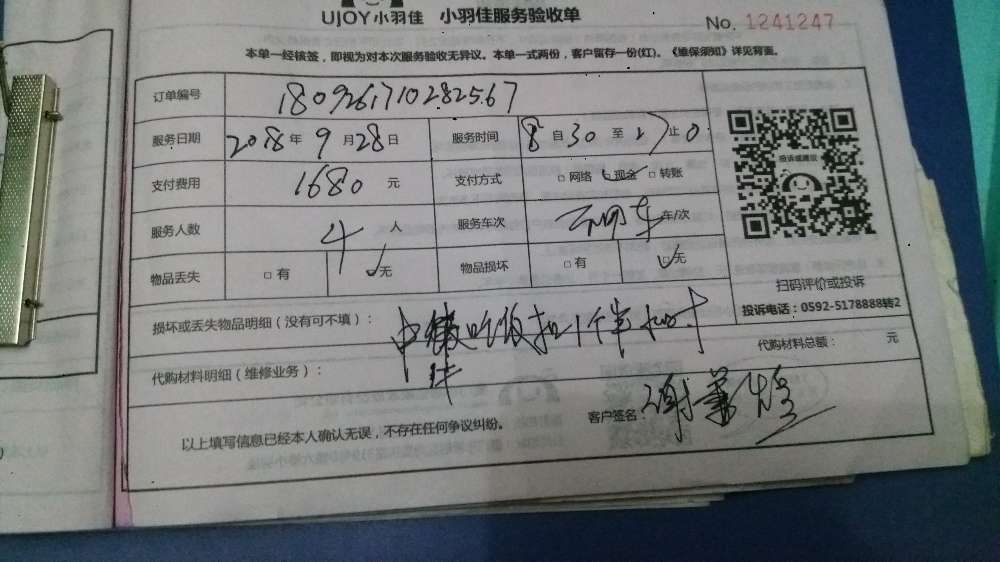 UJOY小羽佳 小羽佳服务验收单
No. 1241247
本单一经核签，即视为对本次服务验收无异议。本单一式两份，客户留存一份(红)。《维保须知》详见背面。
订单编号 1809261710282567
服务日期 2018年9月28日 服务时间 8自30至17止0
支付费用 1680元 支付方式 □网络 □现金 □转账
服务人数 4人 服务车次 不用车 车/次
物品丢失 □有 □无 物品损坏 □有 □无
投诉或建议
扫码评价或投诉
投诉电话：0592-5178888转2
损坏或丢失物品明细（没有可不填）： 中 吃饭扣1个半小时
代购材料明细（维修业务）： 代购材料总额： 元
以上填写信息已经本人确认无误，不存在任何争议纠纷。 客户签名： 谢